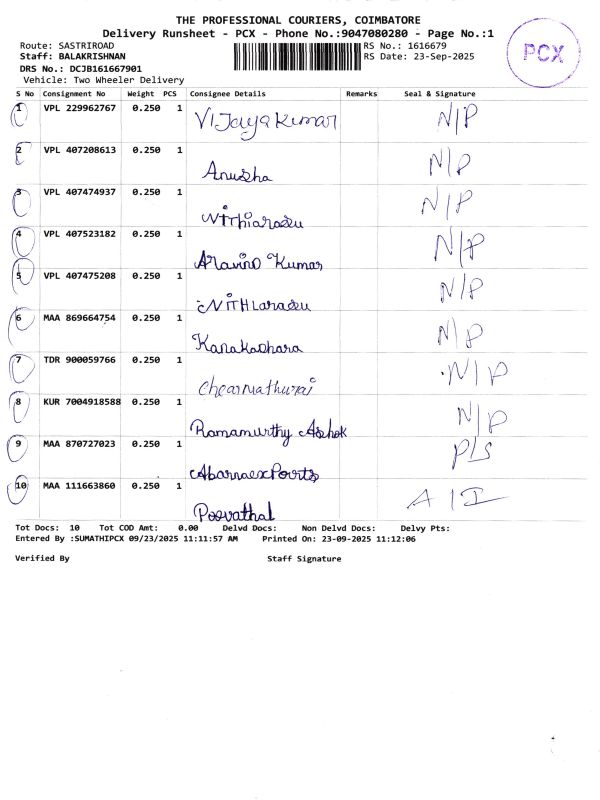 THE PROFESSIONAL COURIERS, COIMBATORE
Delivery Runsheet - PCX - Phone No.:9047080280 - Page No.:1
Route: SASTRIROAD RS No.: 1616679
Staff: BALAKRISHNAN RS Date: 23-Sep-2025
DRS No.: DCJB161667901
Vehicle: Two Wheeler Delivery
PCX
S No Consignment No Weight PCS Consignee Details Remarks Seal & Signature
1 VPL 229962767 0.250 1 Vijayakumar N/P
2 VPL 407208613 0.250 1 Anusha N/P
3 VPL 407474937 0.250 1 Nithiarasu N/P
4 VPL 407523182 0.250 1 Aravind Kumar N/P
5 VPL 407475208 0.250 1 Nithiarasu N/P
6 MAA 869664754 0.250 1 Kanakadhara N/P
7 TDR 900059766 0.250 1 N/P
8 KUR 7004918588 0.250 1 Ramamurthy Ashok N/P
9 MAA 870727023 0.250 1 P/S
10 MAA 111663860 0.250 1 Poovathal A/I
Tot Docs: 10 Tot COD Amt: 0.00 Delvd Docs: Non Delvd Docs: Delvy Pts:
Entered By :SUMATHIPCX 09/23/2025 11:11:57 AM Printed On: 23-09-2025 11:12:06
Verified By Staff Signature